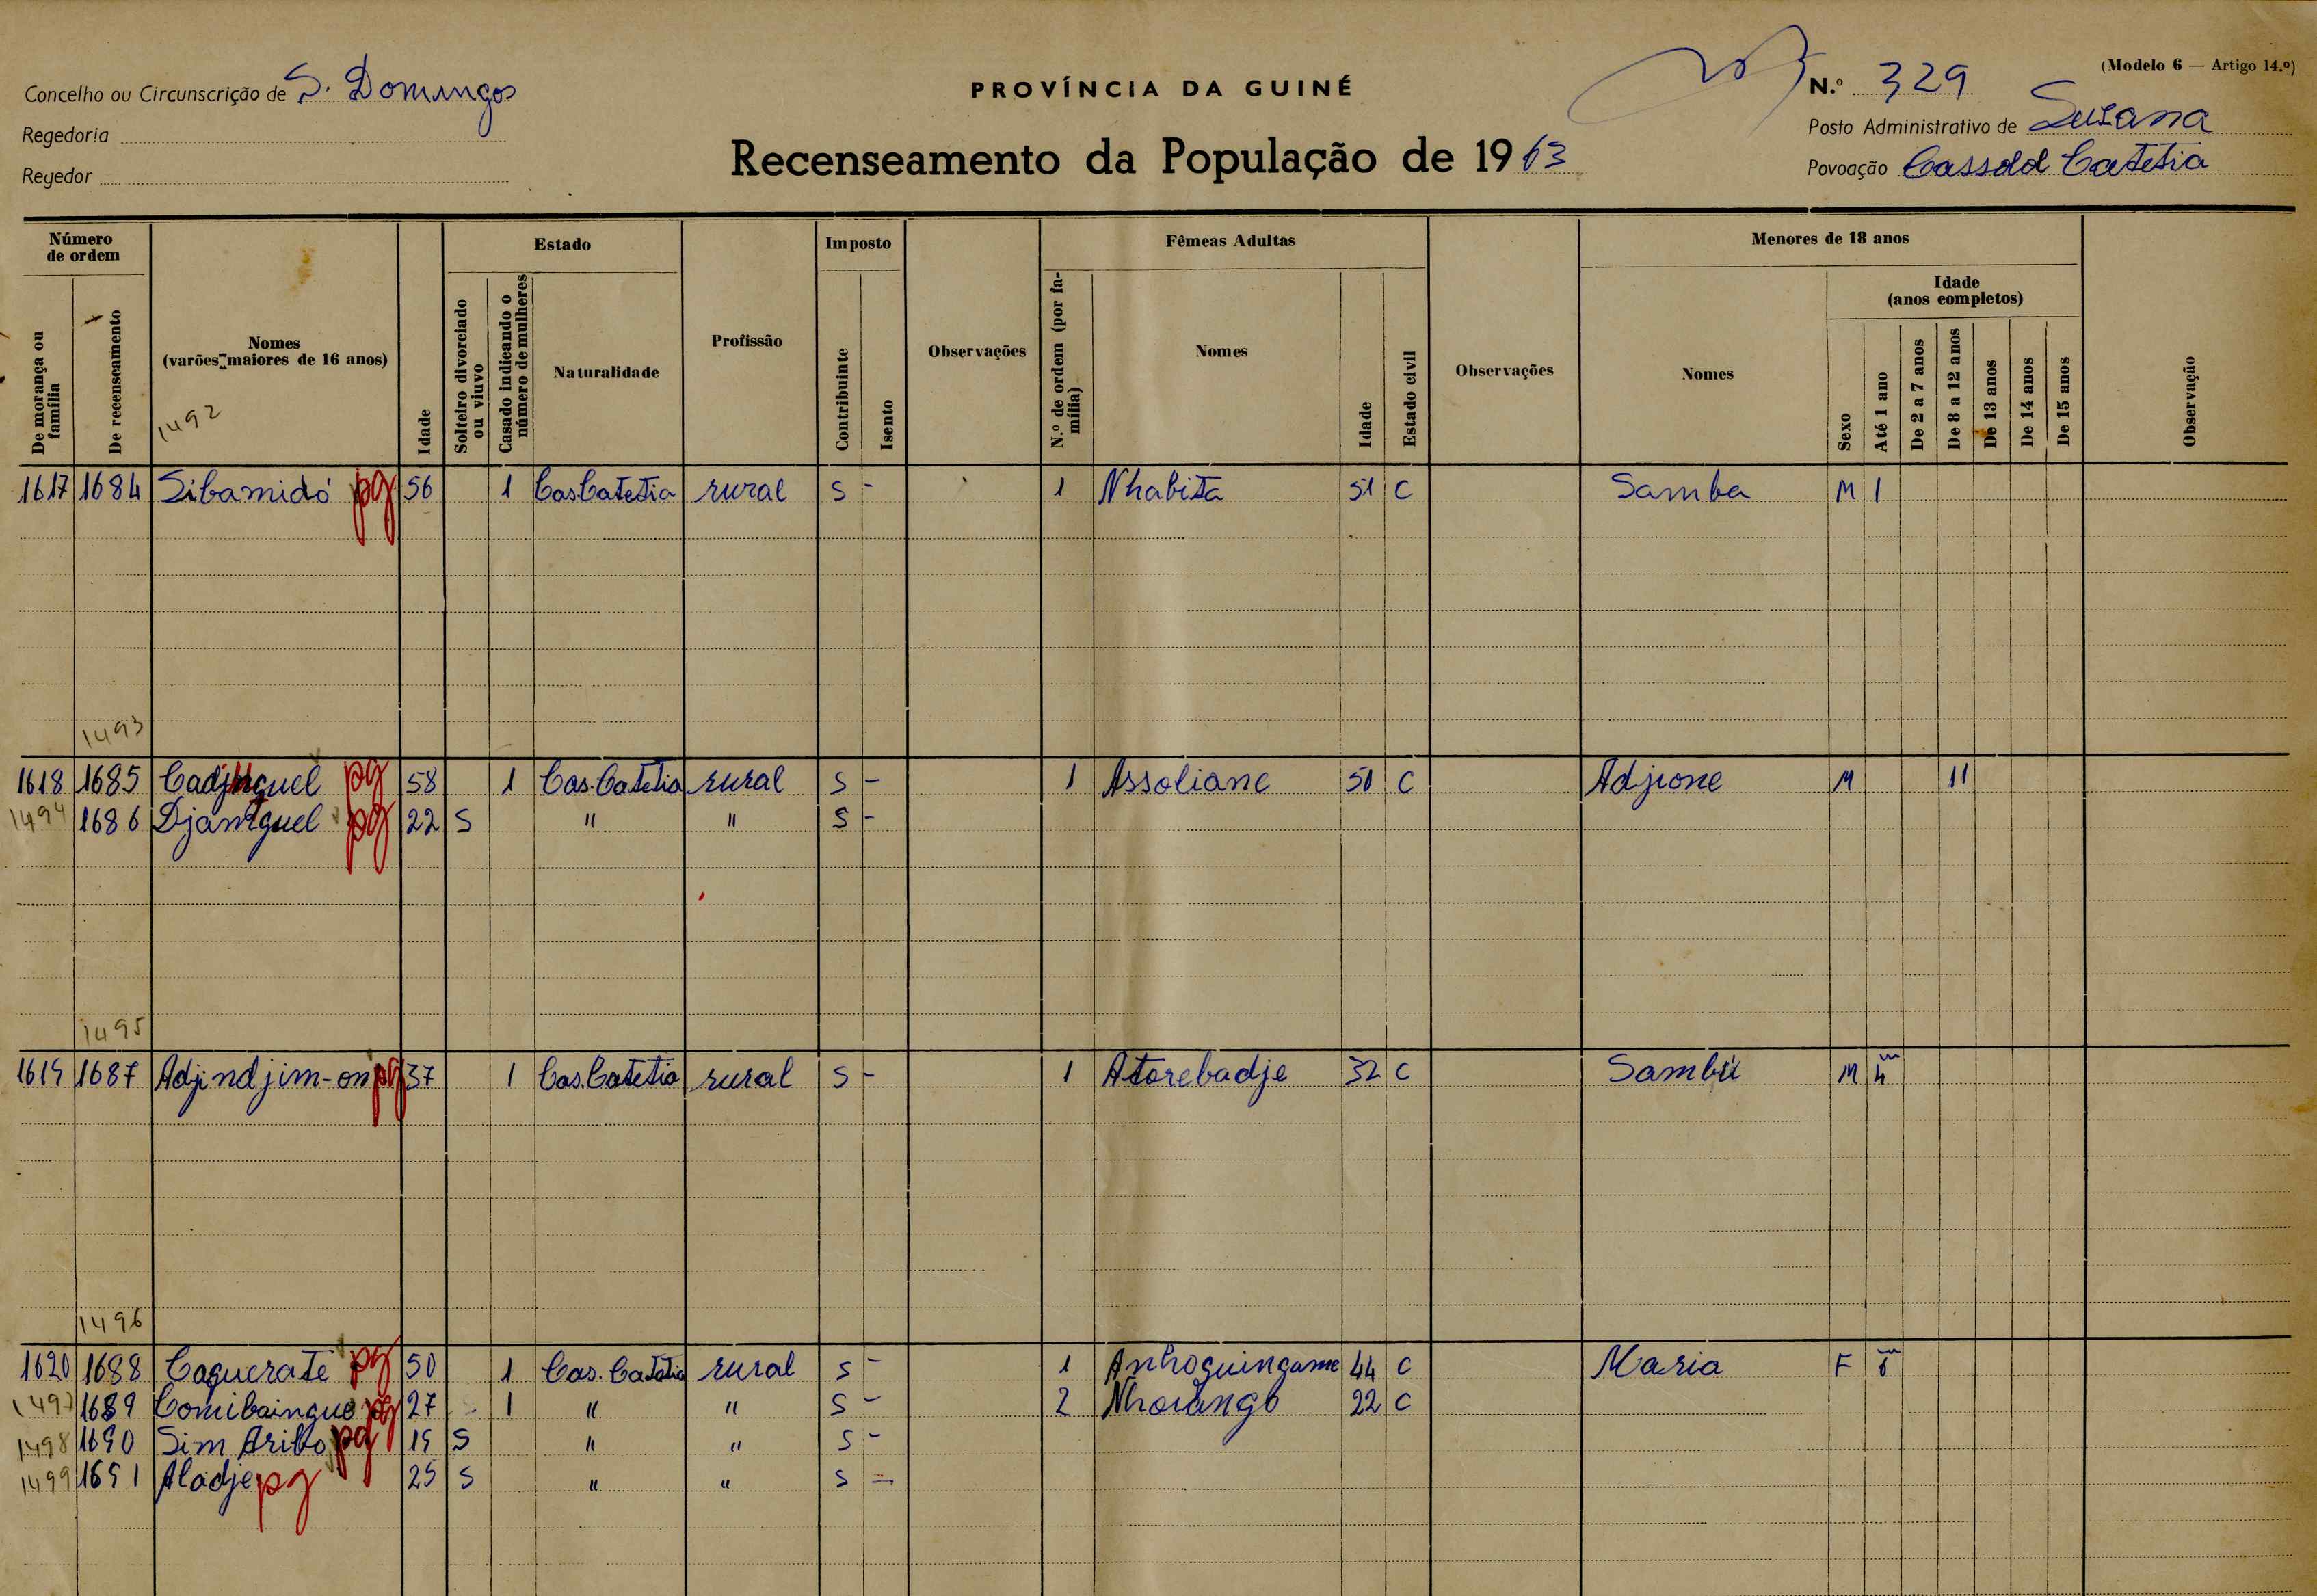 (Modelo 6 — Artigo 14.º)
Concelho ou Circunscrição de S. Domingos
PROVÍNCIA DA GUINÉ
N.º 329
Regedoria
Posto Administrativo de Susana
Regedor
Recenseamento da População de 1963
Povoação Cassolol Catetia
Número de ordem
Estado
Imposto
Fêmeas Adultas
Menores de 18 anos
De morança ou família
De recenseamento
Nomes (varões maiores de 16 anos)
Idade
Solteiro divorciado ou viuvo
Casado indicando o número de mulheres
Naturalidade
Profissão
Contribuinte
Isento
Observações
N.º de ordem (por família)
Nomes
Idade
Estado civil
Observações
Nomes
Sexo
Idade (anos completos)
Até 1 ano
De 2 a 7 anos
De 8 a 12 anos
De 13 anos
De 14 anos
De 15 anos
Observação
1492
1617 1684 Sibamidó pg 56 1 Cas Catetia rural S - 1 Nhabita 51 C Samba M 1
1493
1618 1685 pg 58 1 Cas. Catetia rural S - 1 Assoliane 50 C Adjione M 11
1494 1686 Djamguel pg 22 S " " S -
1495
1619 1687 Adjindjim-on pg 37 1 Cas. Catetia rural S - 1 Atorebadje 32 C Sambú M 4 m
1496
1620 1688 Caquerate pg 50 1 Cas. Catetia rural S - 1 Anhoquingame 44 C Maria F 6 m
1497 1689 pg 27 - 1 " " S - 2 22 C
1498 1690 Sim Aribo pg 19 S " " S -
1499 1691 Aladje pg 25 S " " S -